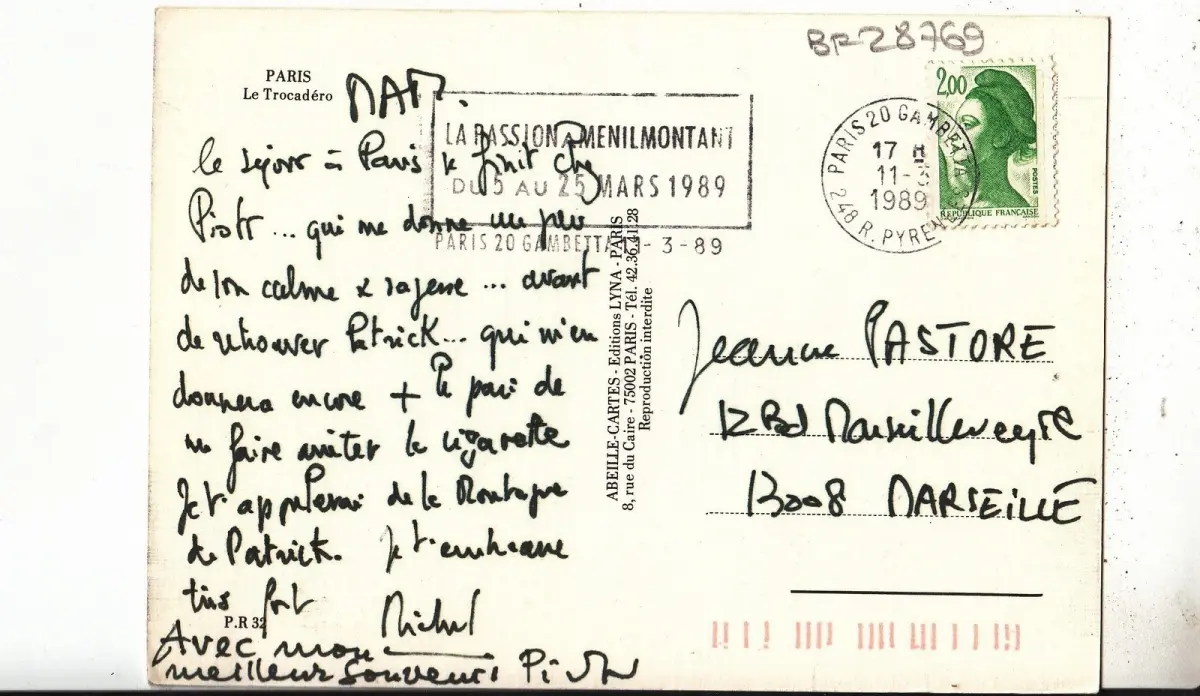 BF28769
PARIS
Le Trocadéro
MAM.
LA PASSION A MENILMONTANT
DU 5 AU 25 MARS 1989
PARIS 20 GAMBETTA 11-3-89
PARIS 20 GAMBETTA
17 H
11-3
1989
248 R. PYRENEES
2,00
POSTES
REPUBLIQUE FRANÇAISE
le séjour à Paris se finit chez
Piotr... qui me donne un peu
de son calme & sagesse... avant
de retrouver Patrick... qui m'en
donnera encore + le pari de
me faire arrêter la cigarette
Je t'appellerai de la Montagne
de Patrick. Je t'embrasse
très fort
Michel
P.R 32
Avec mon
meilleur souvenir
ABEILLE-CARTES - Editions LYNA - PARIS
8, rue du Caire - 75002 PARIS - Tél. 42.36.41.28
Reproduction interdite
Jeanne PASTORE
12 Bd Marseilleveyre
13008 MARSEILLE